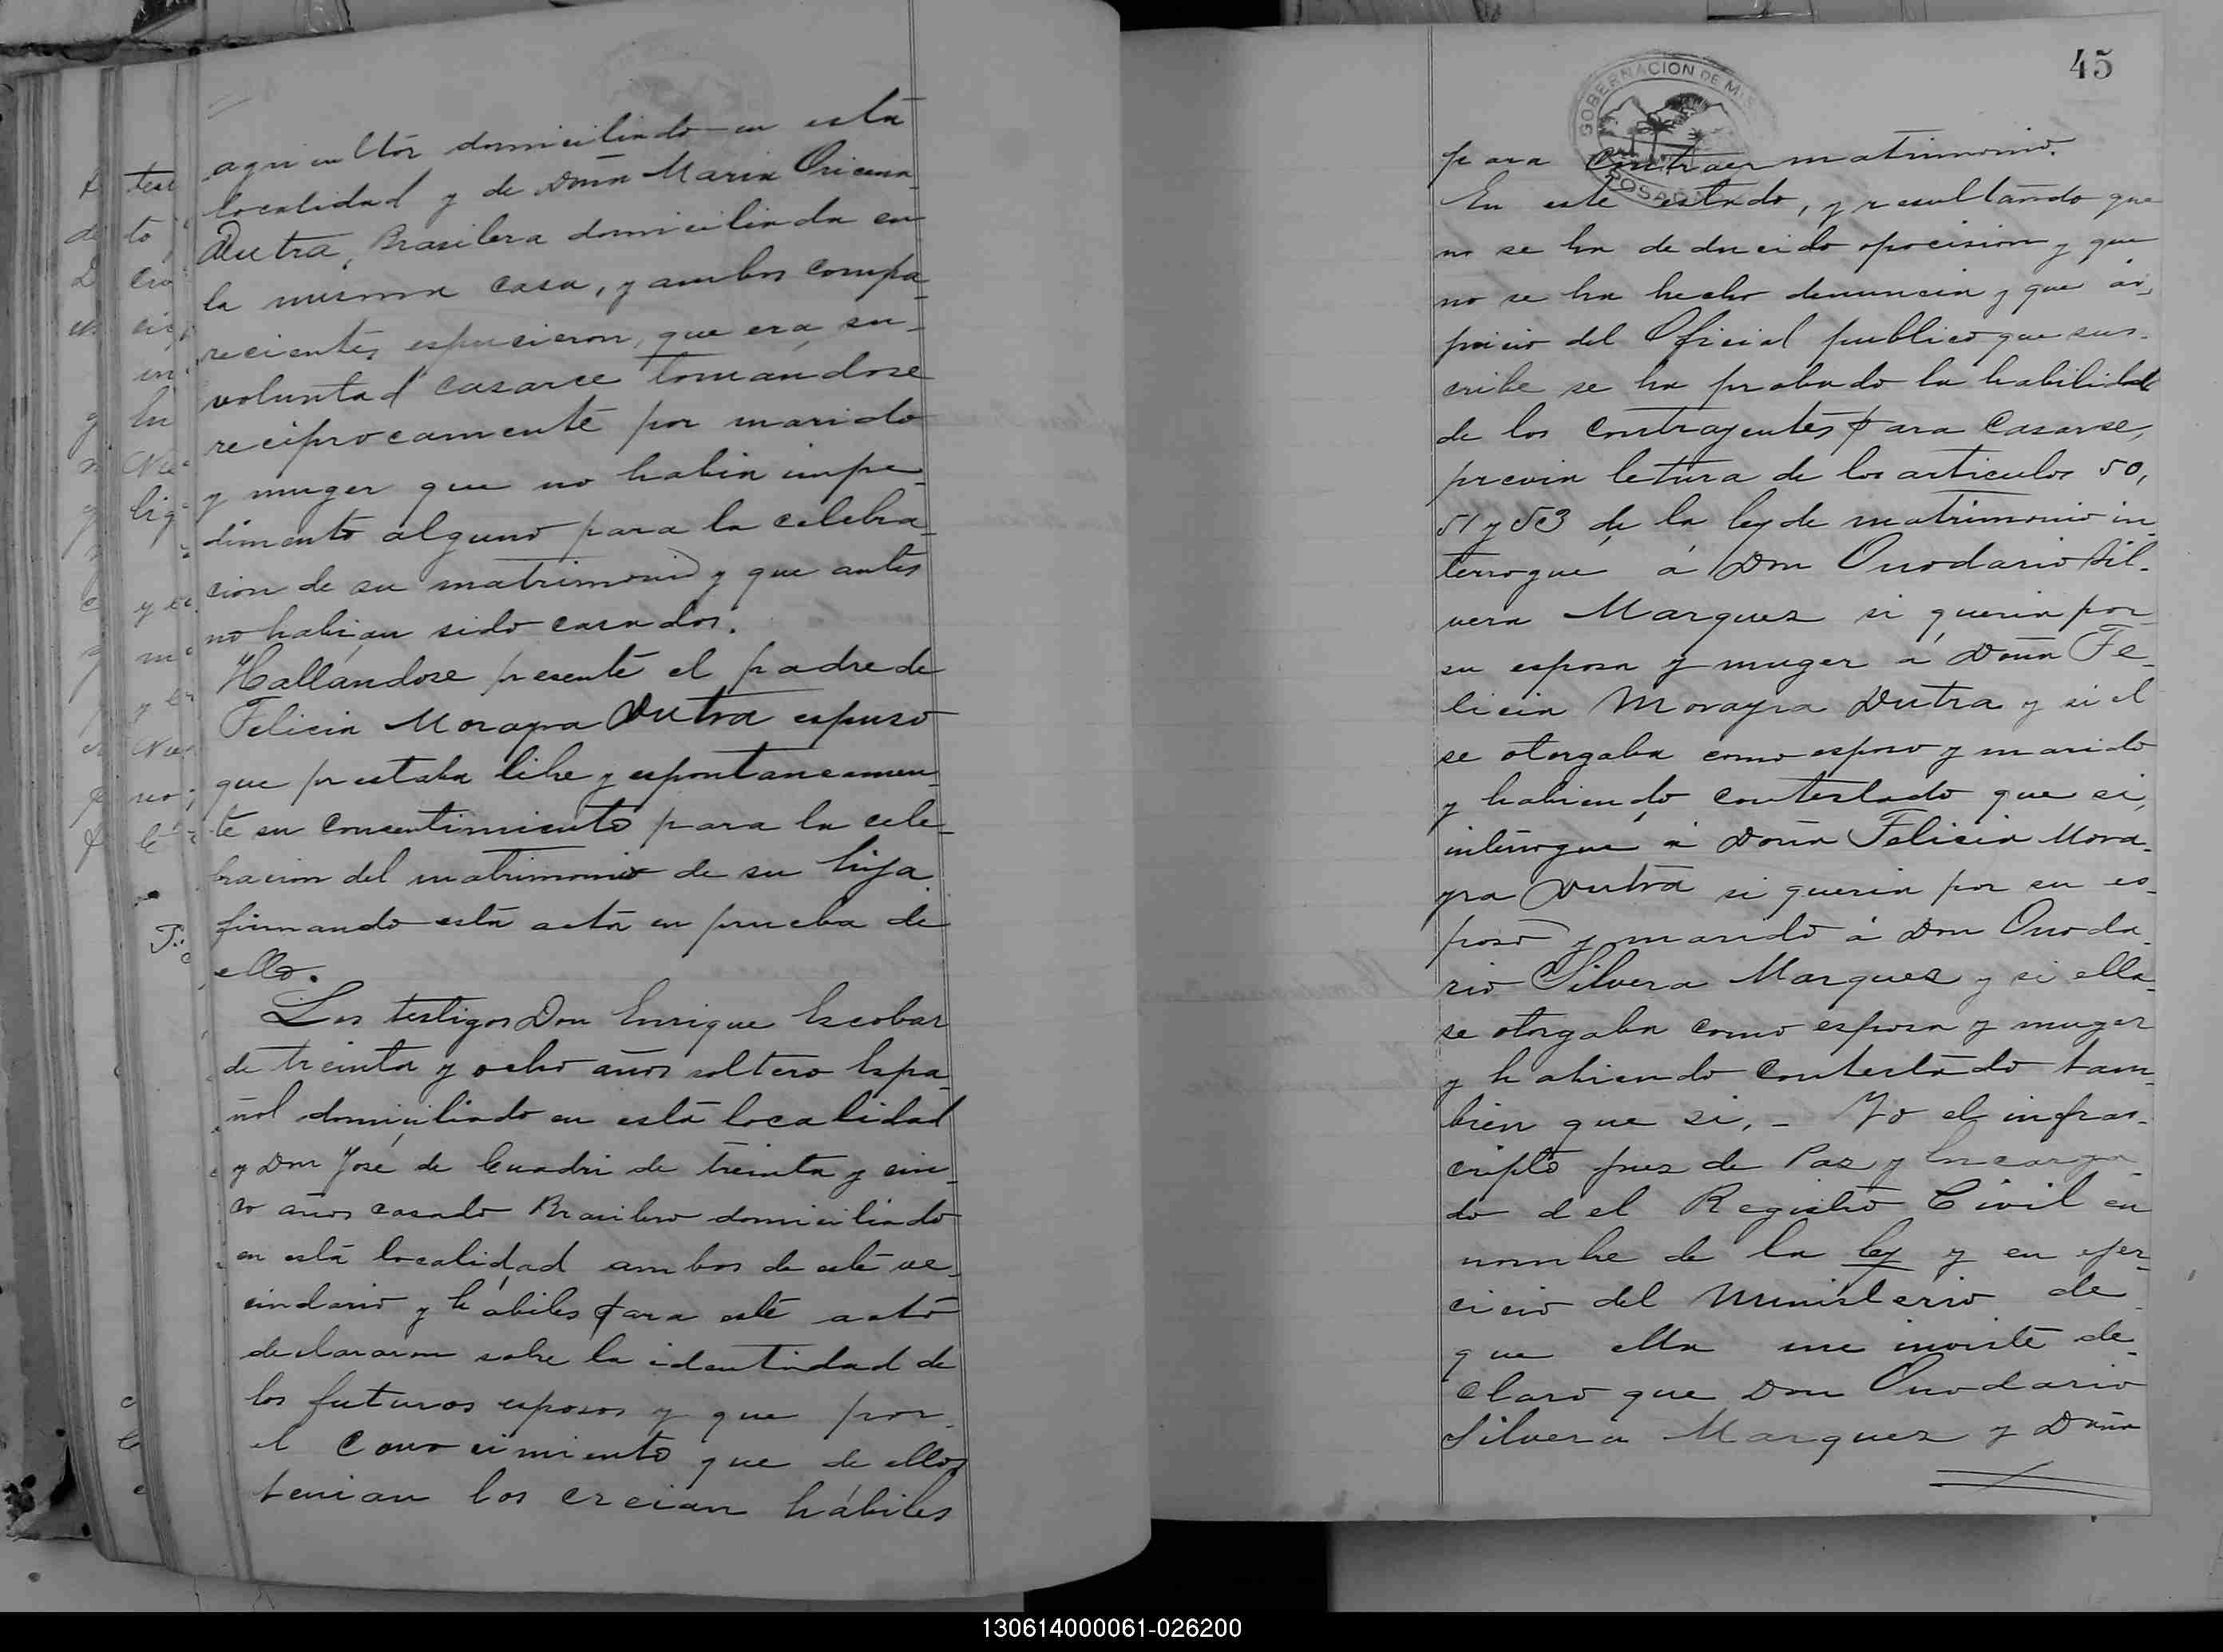 agricultor domiciliado en esta
localidad y de Doña Maria Oricena
Dutra, Brasilera domiciliada en
la misma casa, y ambos compa_
recientes espucieron, que era su_
voluntad casarce tomandose
reciprocamente por marido
y muger que no habia impe_
dimento alguno para la celebra_
cion de su matrimonio y que antes
no habian sido casados.
Hallandose presente el padre de
Felicia Morayra Dutra espuso
que prestaba libre y espontaneamen_
te su consentimiento para la cele_
bracion del matrimonio de su hija
firmando esta acta en prueba de
ello.
Los testigos Don Enrique Escobar
de treinta y ocho años soltero Espa_
ñol domiciliado en esta localidad
y Don José de Cuadri de treinta y cin_
co años casado Brasilero domiciliado
en esta localidad ambos de este ve_
cindario y hábiles para este acto
declararon sobre la identindad de
los futuros esposos y que por_
el conocimiento que de ellos
tenian los creian hábiles
45
GOBERNACION DE MIS
POSADAS
para contraer matrimonio.
En este estado, y resultando que
no se ha deducido oposicion y que
no se ha hecho denuncia y que
juicio del Oficial publico que sus_
cribe se ha probado la habilidad
de los contrayentes para casarse,
previa letura de los articulos 50,
51 y 53 de la ley de matrimonio in_
terrogue á Don Onodario Sil_
vera Marquez si queria por
su esposa y muger á Doña Fe_
licia Morayra Dutra y si el
se otorgaba como esposo y marido
y habiendo contestado que si,
interrogue á Doña Felicia Mora_
yra Dutra si queria por su es_
poso y marido á Don Onoda_
rio Silvera Marquez y si ella_
se otorgaba como esposa y muger
y habiendo contestado tam_
bien que si, _ Yo el infras_
cripto juez de Paz y Encarga_
do del Registro Civil en
nombre de la ley y en ejer_
cicio del Ministerio de
que ella me inviste de_
claro que Don Onodario
Silvera Marquez y Doña
130614000061-026200